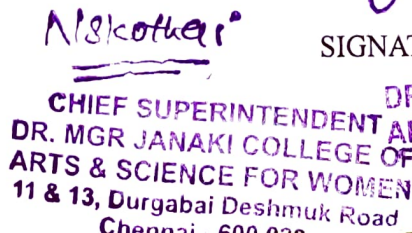 SIGNAT
CHIEF SUPERINTENDENT
DR. MGR JANAKI COLLEGE OF
ARTS & SCIENCE FOR WOMEN
11 & 13, Durgabai Deshmuk Road
Chennai - 600 028